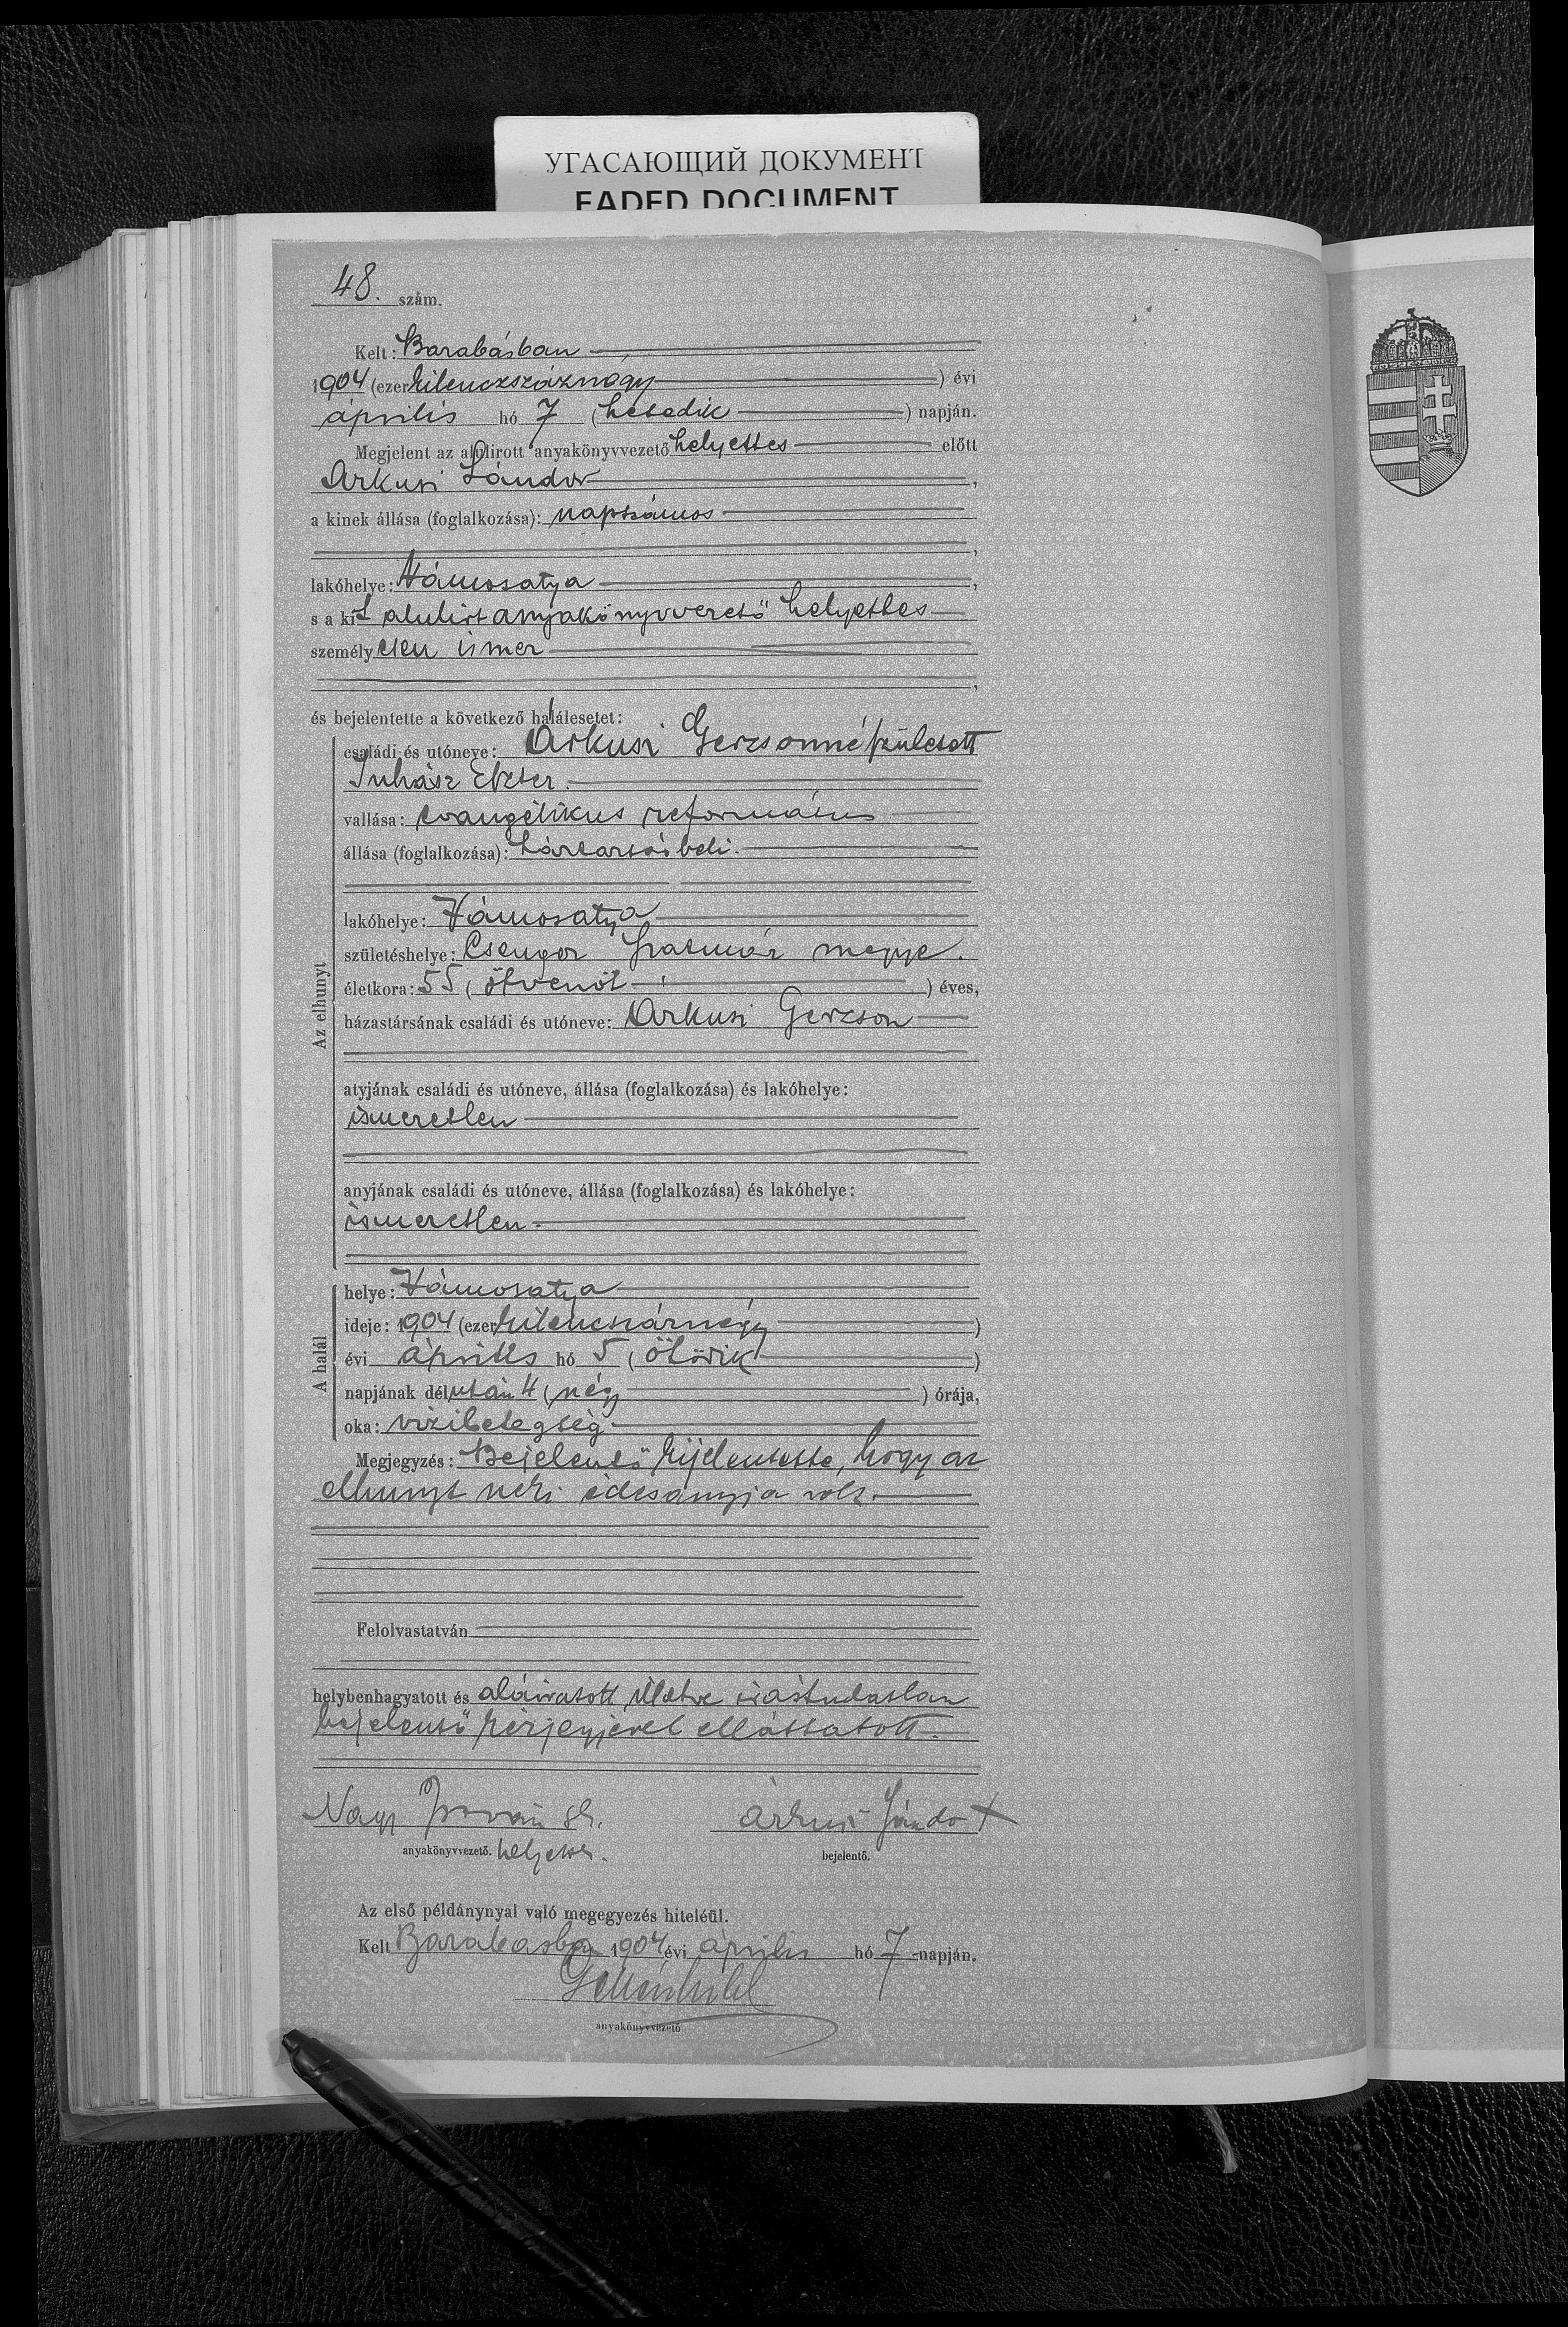 УГАСАЮЩИЙ ДОКУМЕНТ
FADED DOCUMENT
48. szám.
Kelt: Barabásban
1904 (ezer kilenczszáznégy) évi
április hó 7 (hetedik) napján.
Megjelent az alulirott anyakönyvvezető helyettes előtt
Arkusi Sándor,
a kinek állása (foglalkozása): napszámos
,
lakóhelye: Vámosatya,
s a kit alulirt anyakönyvvezető helyettes
személyesen ismer
,
és bejelentette a következő halálesetet:
családi és utóneve: Arkusi Gerzsonné született
Juhász Eszter.
vallása: evangélikus református
állása (foglalkozása): háztartásbeli.
lakóhelye: Vámosatya
születéshelye: Csenger Szatmár megye.
életkora: 55 (ötvenöt) éves,
házastársának családi és utóneve: Arkusi Gerzson
Az elhunyt
atyjának családi és utóneve, állása (foglalkozása) és lakóhelye:
ismeretlen
anyjának családi és utóneve, állása (foglalkozása) és lakóhelye:
ismeretlen.
helye: Vámosatya
ideje: 1904 (ezer kilencszáznégy)
évi április hó 5 (ötödik)
A halál
napjának délután 4 (négy) órája,
oka: vizibetegség
Megjegyzés: Bejelentő kijelentette, hogy az
elhunyt neki édesanyja volt.
Felolvastatván
helybenhagyatott és aláiratott, illetve irástudatlan
bejelentő kézjegyével elláttatott.
Nagy István sk. árkusi Sándor X
anyakönyvvezető. helyettes. bejelentő.
Az első példánynyal való megegyezés hiteléül.
Kelt Barabásban 1904 évi április hó 7 -napján.
anyakönyvvezető